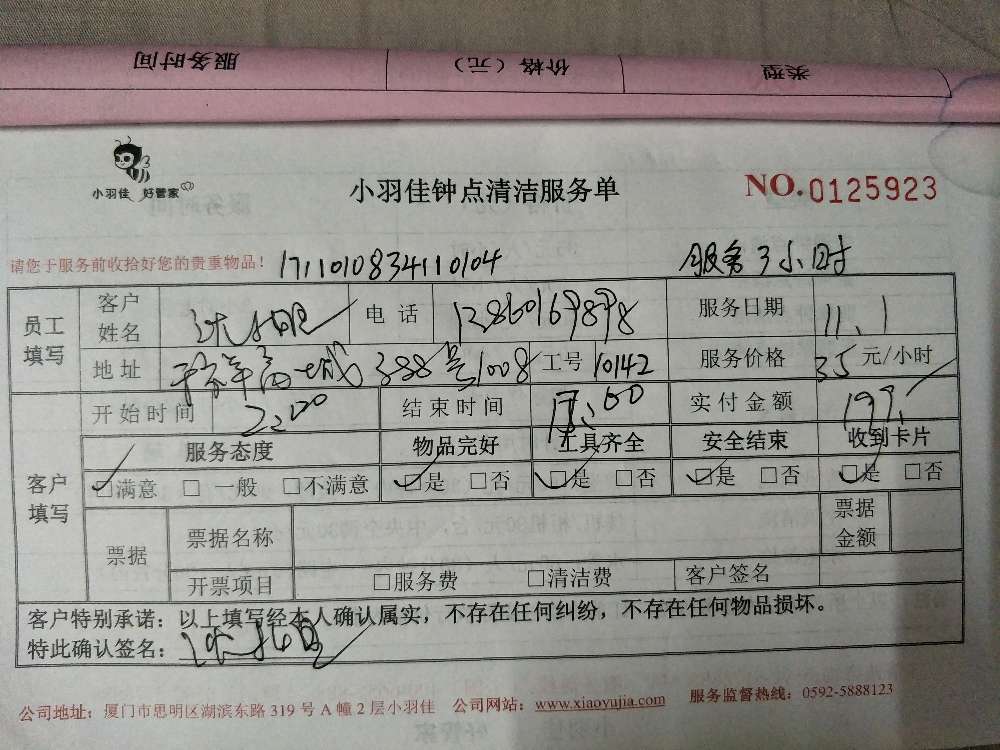 服务时间 价格（元） 类型
小羽佳 好管家
小羽佳钟点清洁服务单
NO.0125923
请您于服务前收拾好您的贵重物品！ 1711010834110104 服务3小时
员工填写 客户姓名 电话 服务日期 11.1
地址 388号1008 工号 10142 服务价格 35元/小时
客户填写 开始时间 结束时间 实付金额
服务态度 物品完好 工具齐全 安全结束 收到卡片
☑满意 □一般 □不满意 ☑是 □否 ☑是 □否 ☑是 □否 ☑是 □否
票据 票据名称 票据金额
开票项目 □服务费 □清洁费 客户签名
客户特别承诺：以上填写经本人确认属实，不存在任何纠纷，不存在任何物品损坏。
特此确认签名：
公司地址：厦门市思明区湖滨东路319号A幢2层小羽佳 公司网站：www.xiaoyujia.com 服务监督热线：0592-5888123